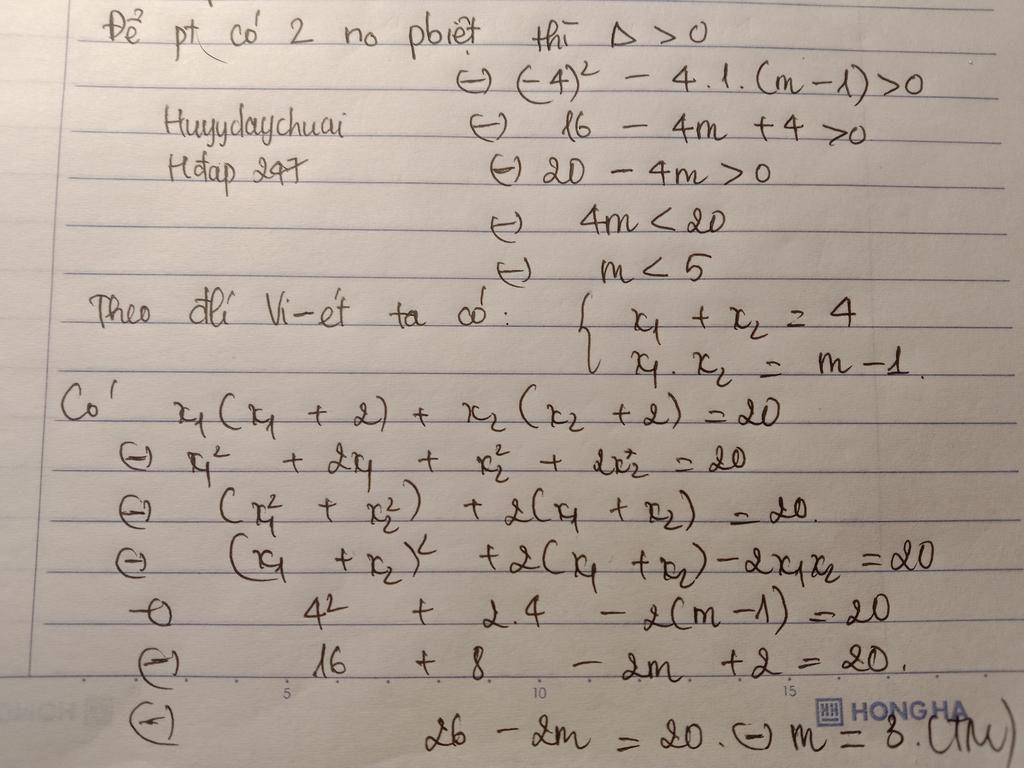 Để pt có 2 no pbiệt thì Δ > 0
(-) (-4)² - 4.1.(m-1) > 0
Huyydaychuai (-) 16 - 4m + 4 > 0
Hđap 247 (-) 20 - 4m > 0
(-) 4m < 20
(-) m < 5
Theo đlí Vi-ét ta có: { x₁ + x₂ = 4
x₁. x₂ = m - 1.
Có x₁(x₁ + 2) + x₂(x₂ + 2) = 20
(-) x₁² + 2x₁ + x₂² + 2x₂² = 20
(-) (x₁² + x₂²) + 2(x₁ + x₂) = 20.
(-) (x₁ + x₂)² + 2(x₁ + x₂) - 2x₁x₂ = 20
(-) 4² + 2.4 - 2(m-1) = 20
(-) 16 + 8 - 2m + 2 = 20.
5 10 15
HH HONG HA
(-) 26 - 2m = 20. (-) m = 3. (TM)